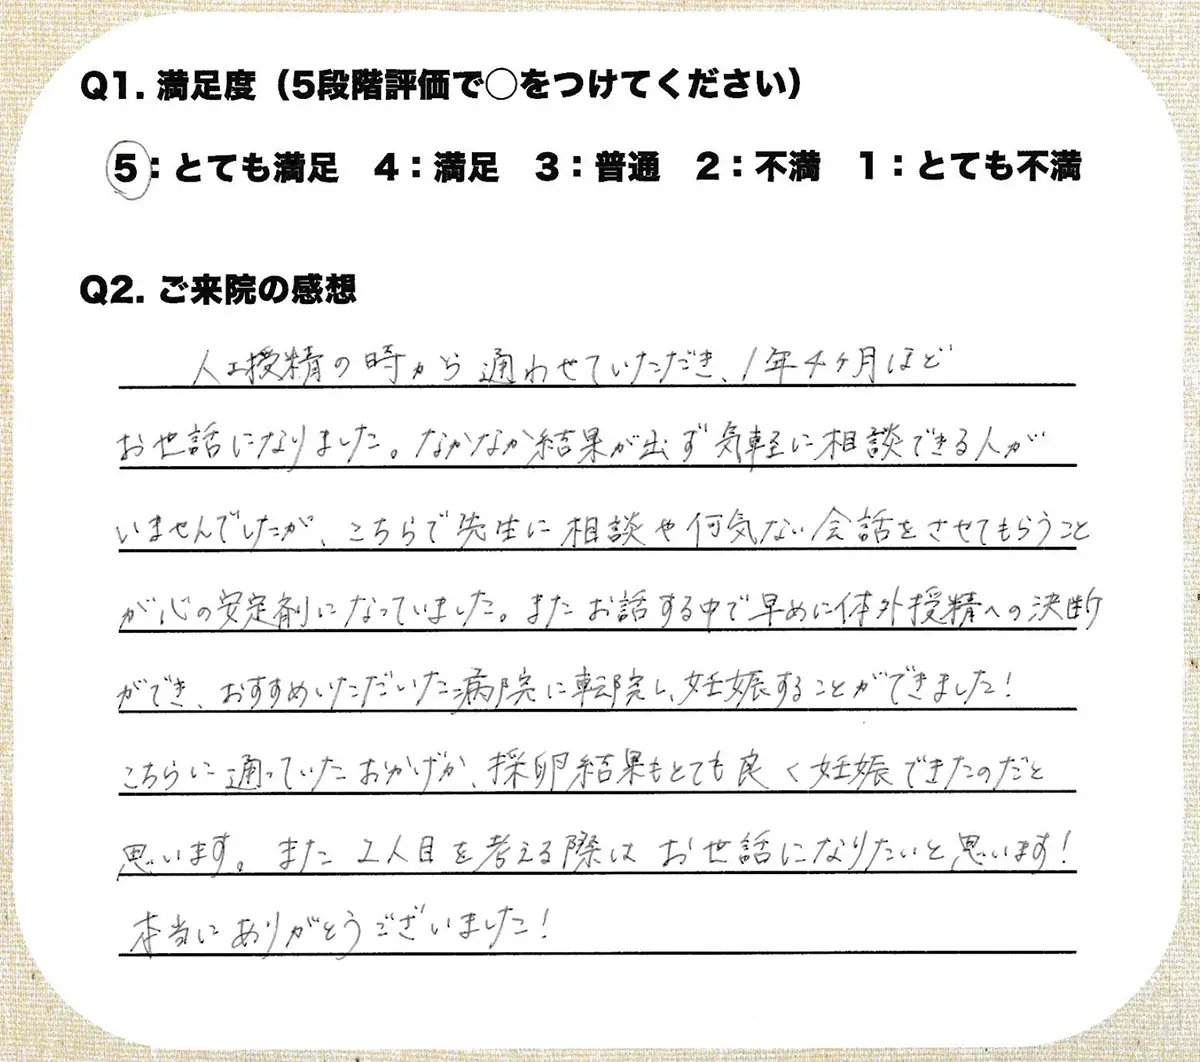 Q1. 満足度（5段階評価で○をつけてください）
5：とても満足　4：満足　3：普通　2：不満　1：とても不満
Q2. ご来院の感想
人工授精の時から通わせていただき、1年4ヶ月ほど
お世話になりました。なかなか結果が出ず気軽に相談できる人が
いませんでしたが、こちらで先生に相談や何気ない会話をさせてもらうこと
が心の安定剤になっていました。またお話する中で早めに体外授精への決断
ができ、おすすめいただいた病院に転院し、妊娠することができました！
こちらに通っていたおかげか、採卵結果もとても良く妊娠できたのだと
思います。また2人目を考える際はお世話になりたいと思います！
本当にありがとうございました！